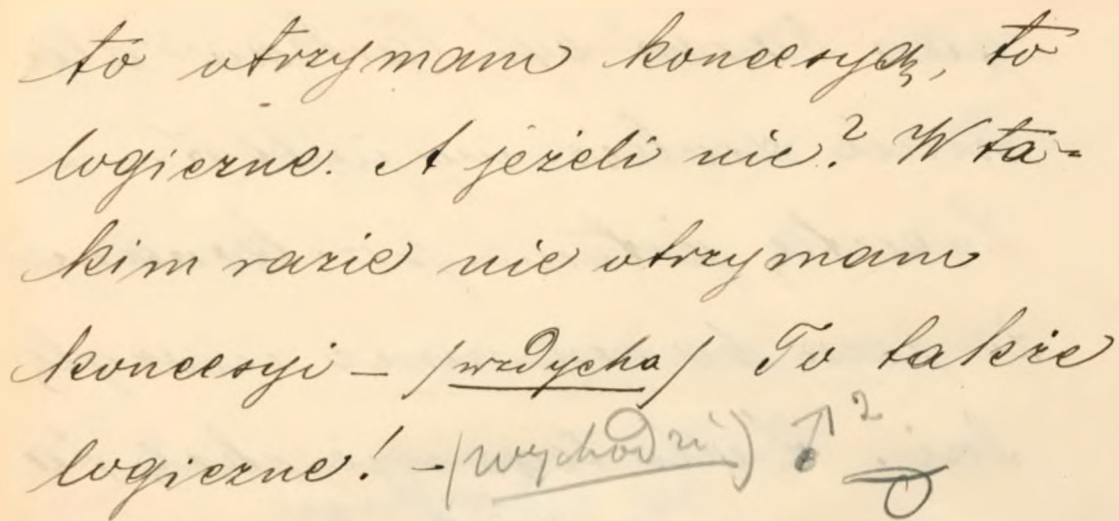 to otrzymam koncesyą, to
logiczne. A jeżeli nie? W ta-
kim razie nie otrzymam
koncesyi – /wzdycha/ To także
logiczne! – (wychodzi)